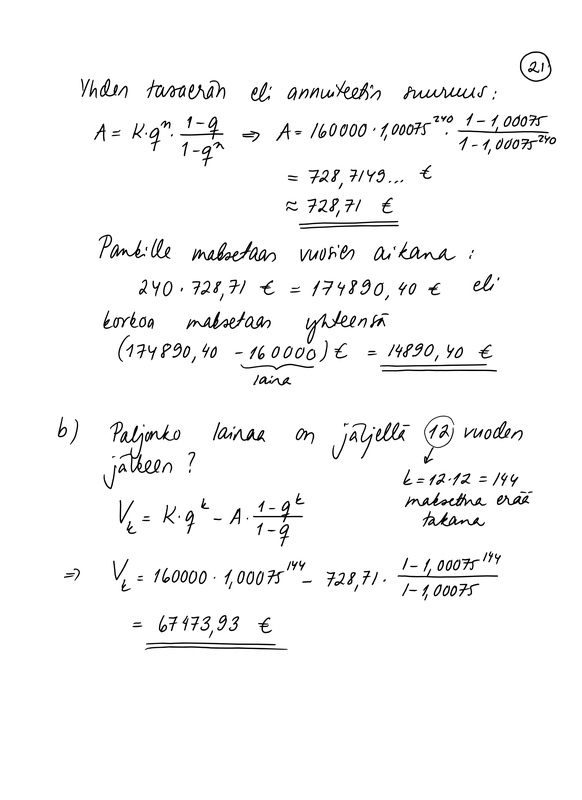 21
Yhden tasaerän eli annuiteetin suuruus:
A = K·qⁿ · (1-q)/(1-qⁿ) ⇒ A = 160000 · 1,00075²⁴⁰ · (1-1,00075)/(1-1,00075²⁴⁰)
= 728,7149... €
≈ 728,71 €
Pankille maksetaan vuosien aikana:
240 · 728,71 € = 174890,40 € eli
korkoa maksetaan yhteensä
(174890,40 - 160000) € = 14890,40 €
laina
b) Paljonko lainaa on jäljellä 12 vuoden
jälkeen?
k = 12·12 = 144
maksettua erää
takana
Vₖ = K·qᵏ - A · (1-qᵏ)/(1-q)
⇒ Vₖ = 160000 · 1,00075¹⁴⁴ - 728,71 · (1-1,00075¹⁴⁴)/(1-1,00075)
= 67473,93 €